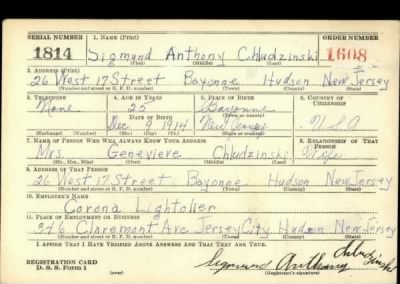 SERIAL NUMBER 1. NAME (Print) ORDER NUMBER
1814 Sigmund Anthony Chludzinski 1608
(First) (Middle) (Last)
2. ADDRESS (Print)
26 West 17 Street Bayonne Hudson New Jersey
(Number and street or R. F. D. number) (Town) (County) (State)
3. TELEPHONE 4. AGE IN YEARS 5. PLACE OF BIRTH 6. COUNTRY OF CITIZENSHIP
None 25 Bayonne
DATE OF BIRTH (Town or county)
Dec 9 1914 New Jersey U.S.A
(Exchange) (Number) (Mo.) (Day) (Yr.) (State or country)
7. NAME OF PERSON WHO WILL ALWAYS KNOW YOUR ADDRESS 8. RELATIONSHIP OF THAT PERSON
Mrs. Genevieve Chludzinski Wife
(Mr., Mrs., Miss) (First) (Middle) (Last)
9. ADDRESS OF THAT PERSON
26 West 17 Street Bayonne Hudson New Jersey
(Number and street or R. F. D. number) (Town) (County) (State)
10. EMPLOYER'S NAME
Corona Lightolier
11. PLACE OF EMPLOYMENT OR BUSINESS
346 Claremont Ave Jersey City Hudson New Jersey
(Number and street or R. F. D. number) (Town) (County) (State)
I AFFIRM THAT I HAVE VERIFIED ABOVE ANSWERS AND THAT THEY ARE TRUE.
REGISTRATION CARD
D. S. S. Form 1
Sigmund Anthony Chludzinski
(Registrant's signature)